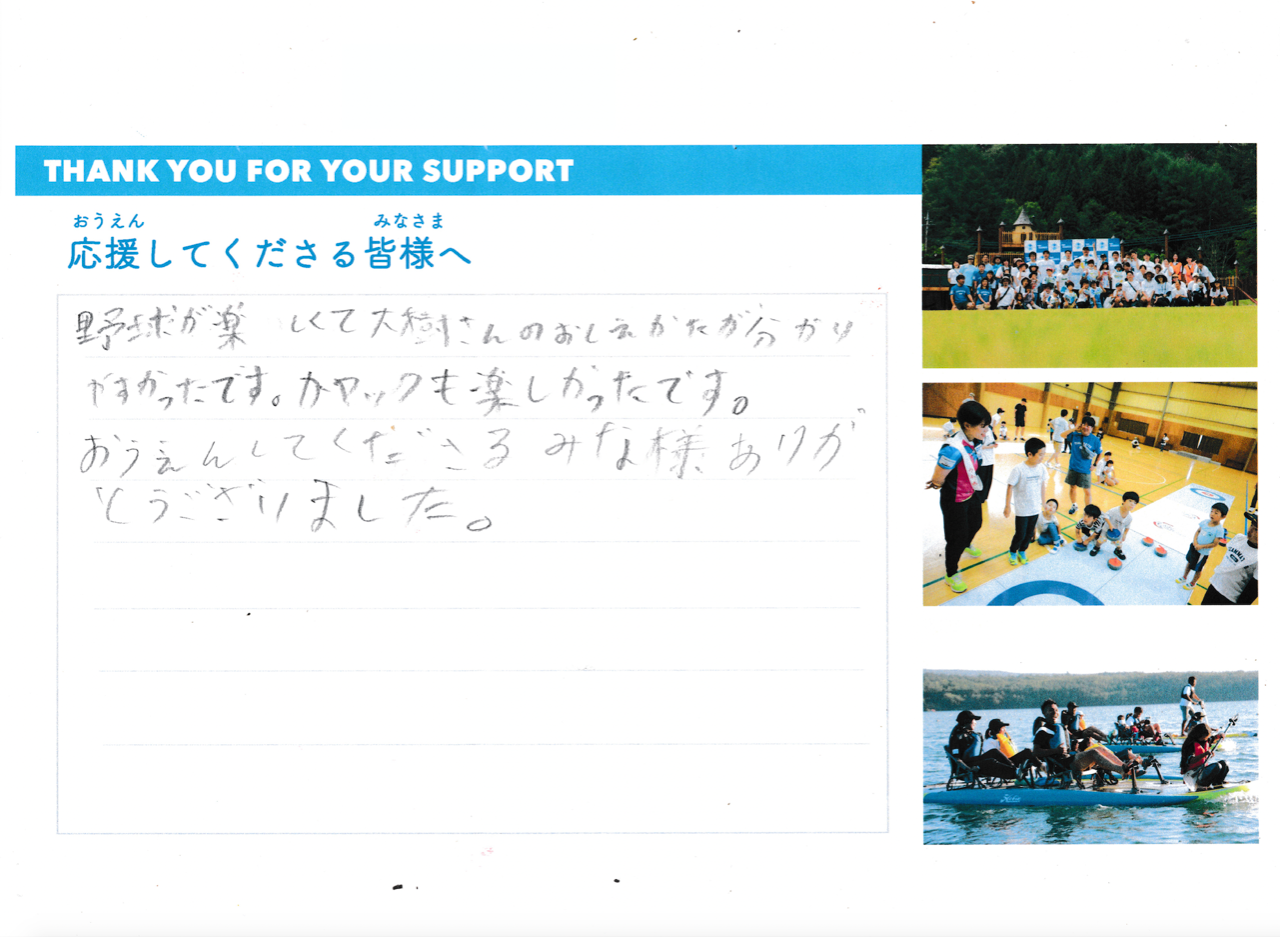 THANK YOU FOR YOUR SUPPORT
おうえん みなさま
応援してくださる皆様へ
野球が楽しくて大樹さんのおしえかたが分かり
やすかったです。カヤックも楽しかったです。
おうえんしてくださるみな様ありが
とうござりました。